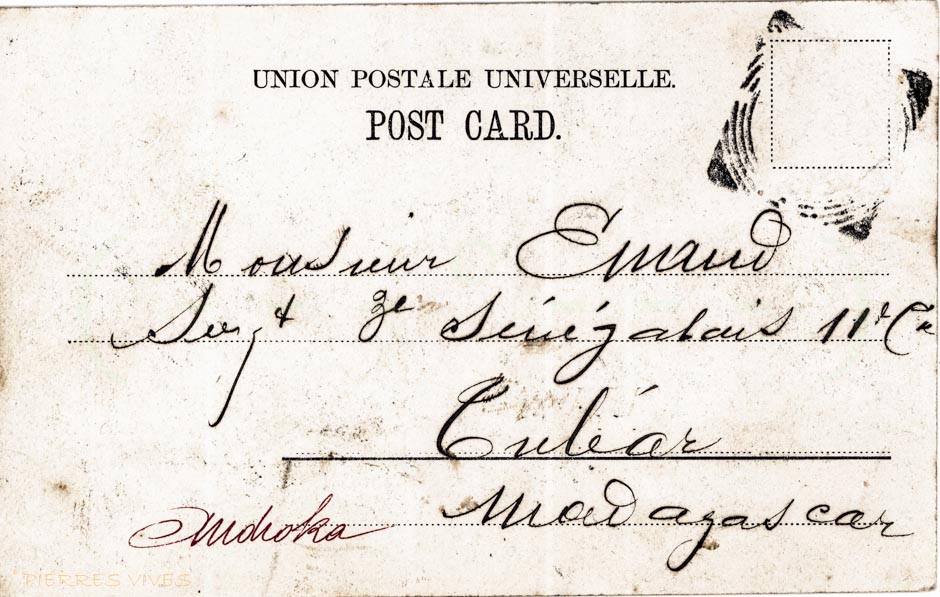 UNION POSTALE UNIVERSELLE.
POST CARD.
Monsieur Emaud
Sergt 3e Sénégalais 11e Cie
Tuléar
Madagascar
Androka
PIERRES VIVES